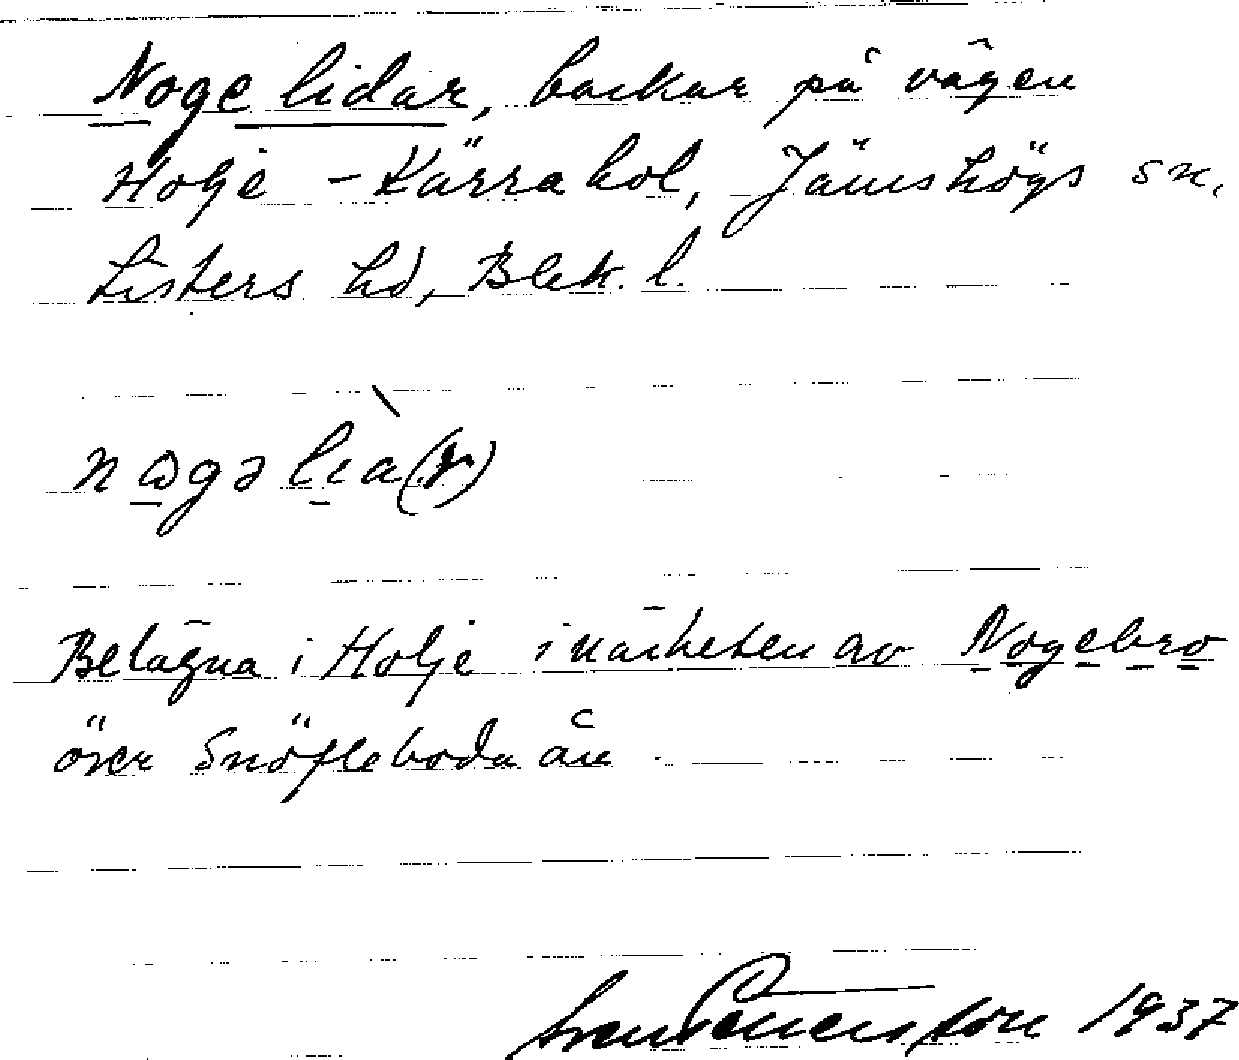 Nogelidar, backar på vägen
Holje - Kärrabol, Jämshögs sn.
Listers hd, Blek. l.
nogəlia(r)
Belägna i Holje i närheten av Nogebro
över Snöfleboda ån.
Sven Benson 1937